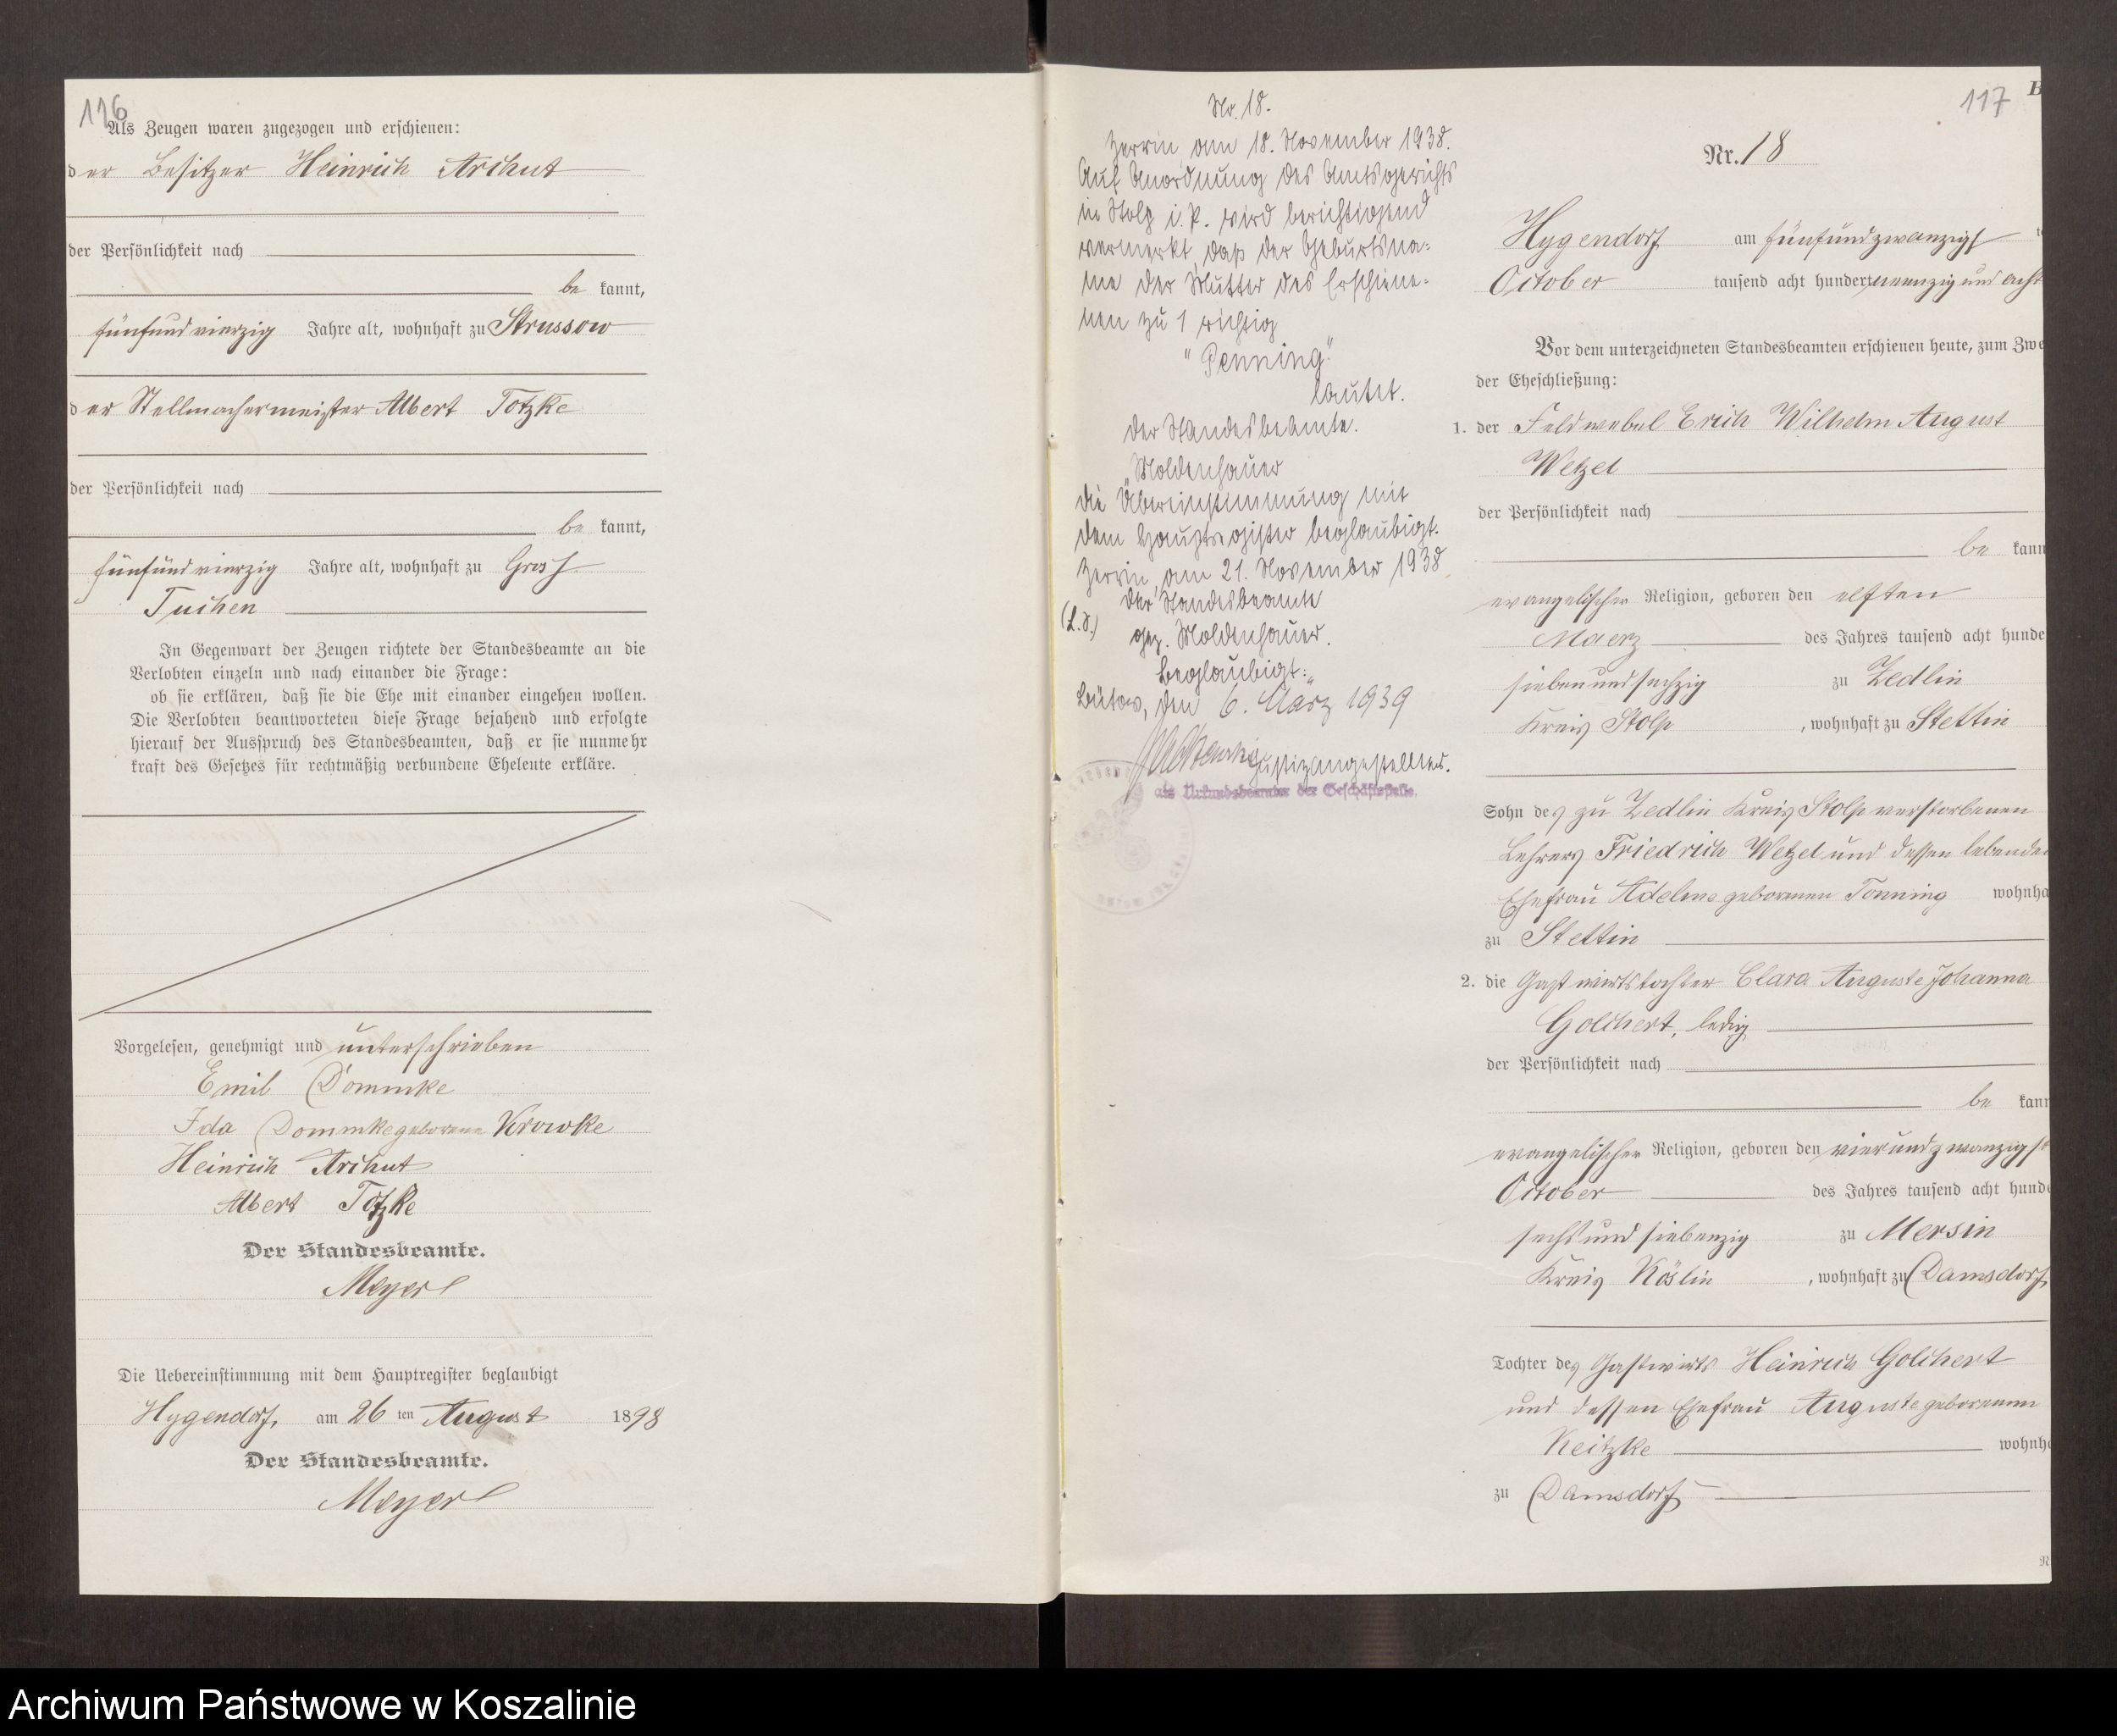 116
Als Zeugen waren zugezogen und erschienen:
der Besitzer Heinrich Archut
der Persönlichkeit nach
be kannt,
fünfundvierzig Jahre alt, wohnhaft zu Strussow
der Stellmachermeister Albert Totzke
der Persönlichkeit nach
be kannt,
fünfundvierzig Jahre alt, wohnhaft zu Gross
Tuchen
In Gegenwart der Zeugen richtete der Standesbeamte an die
Verlobten einzeln und nach einander die Frage:
ob sie erklären, daß sie die Ehe mit einander eingehen wollen.
Die Verlobten beantworteten diese Frage bejahend und erfolgte
hierauf der Ausspruch des Standesbeamten, daß er sie nunmehr
kraft des Gesetzes für rechtmäßig verbundene Eheleute erkläre.
Vorgelesen, genehmigt und unterschrieben
Emil Dommke
Ida Dommke geborene Krowke
Heinrich Archut
Albert Totzke
Der Standesbeamte.
Meyer
Die Uebereinstimmung mit dem Hauptregister beglaubigt
Hygendorf, am 26 ten August 1898
Der Standesbeamte.
Meyer
Nr. 18.
Zerrin, am 18. November 1938.
Auf Anordnung des Amtsgerichts
in Stolp i. P. wird berichtigend
vermerkt, daß der Geburtsna-
me der Mutter des Erschiene-
nen zu 1 richtig
"Penning"
lautet.
Der Standesbeamte.
Moldenhauer
Die Übereinstimmung mit
dem Hauptregister beglaubigt.
Zerrin, am 21. November 1938
Der Standesbeamte
(L.S.) gez. Moldenhauer.
Beglaubigt:
Bütow, den 6. März 1939
Justizangestellter.
als Urkundsbeamter der Geschäftsstelle.
117
B
Nr. 18
Hygendorf am fünfundzwanzigst
October tausend acht hundert neunzig und acht
Vor dem unterzeichneten Standesbeamten erschienen heute, zum Zwe
der Eheschließung:
1. der Feldwebel Erich Wilhelm August
Wetzel
der Persönlichkeit nach
be kann
evangelischer Religion, geboren den elften
Maerz des Jahres tausend acht hunde
siebenundsechzig zu Zedlin
Kreis Stolp, wohnhaft zu Stettin
Sohn des zu Zedlin Kreis Stolp verstorbenen
Lehrers Friedrich Wetzel und dessen lebenden
Ehefrau Adeline geborenen Tonning wohnha
zu Stettin
2. die Gastwirtstochter Clara Auguste Johanna
Golchert, ledig
der Persönlichkeit nach
be kann
evangelischer Religion, geboren den vierundzwanzigst
October des Jahres tausend acht hunde
sechs und siebenzig zu Mersin
Kreis Köslin, wohnhaft zu Damsdorf
Tochter des Gastwirts Heinrich Golchert
und dessen Ehefrau Auguste geborenen
Keitzke wohnha
zu Damsdorf
Archiwum Państwowe w Koszalinie